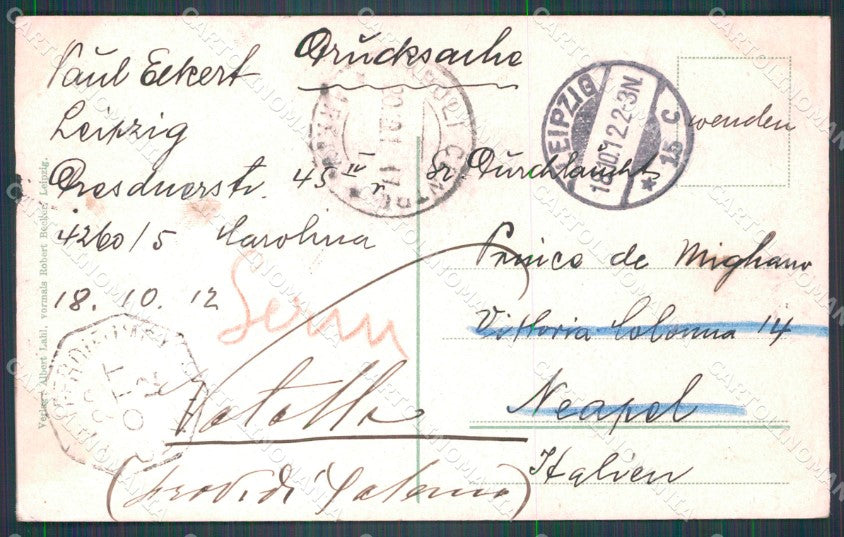 Drucksache
Paul Eckert
Leipzig
Dresdnerstr. 45 IV r
4260/5 Carolina
18. 10. 12
wenden
Sr Durchlaucht
Prince de Mighano
Vittoria Colonna 14
Neapel
Italien
(prov. di Salerno)
LEIPZIG
18.10.12.2-3N.
* 15 C
NAPOLI CENTRO
Verlag: Albert Lahl, vormals Robert Becker, Leipzig.
CARTOLINOMANIA